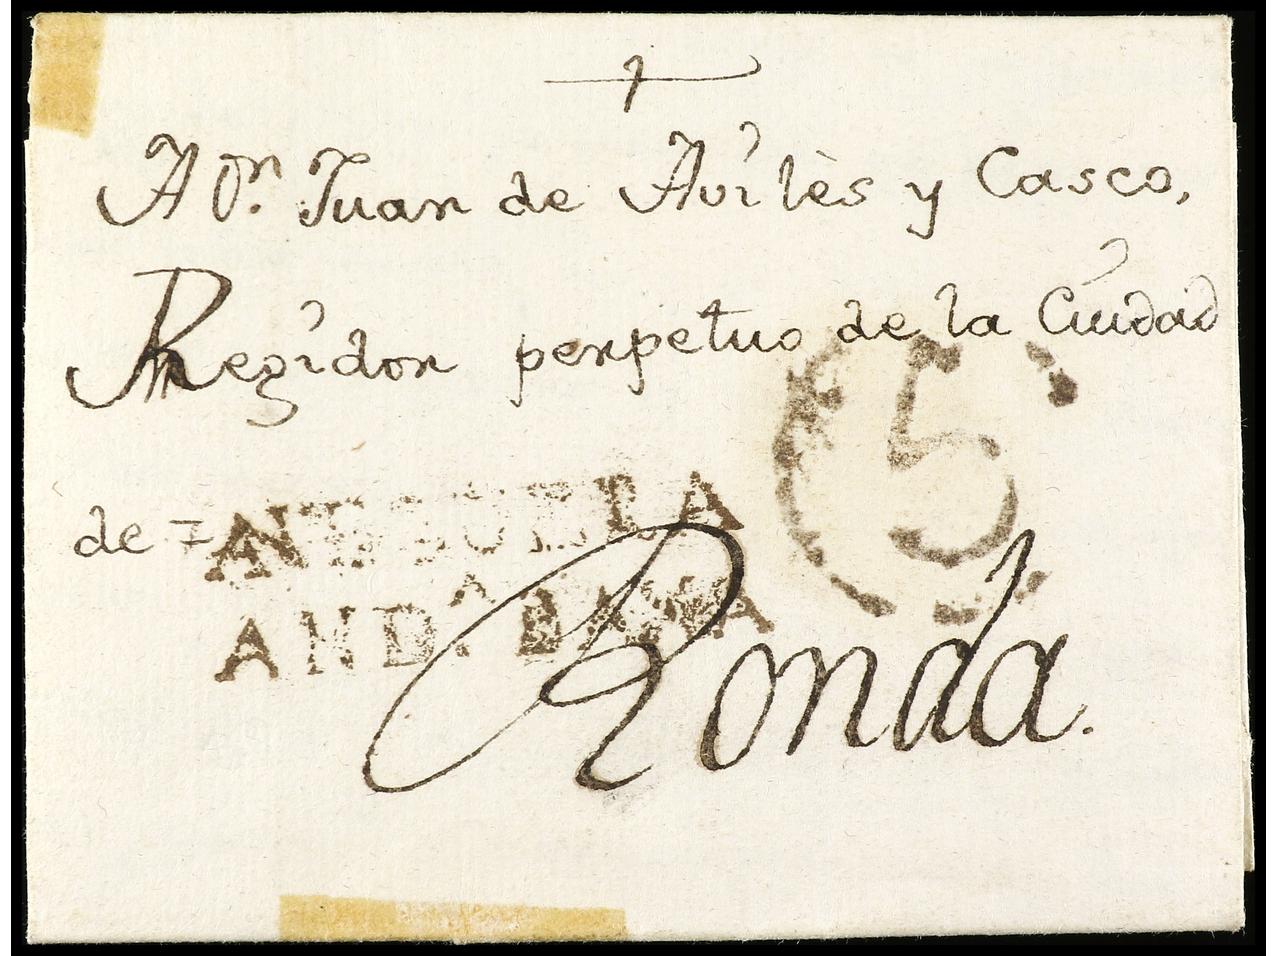 A Dn. Juan de Avilès y Casco,
Regidor perpetuo de la Ciudad
5
de =
ANTEQUERA
ANDALUCIA
Ronda.